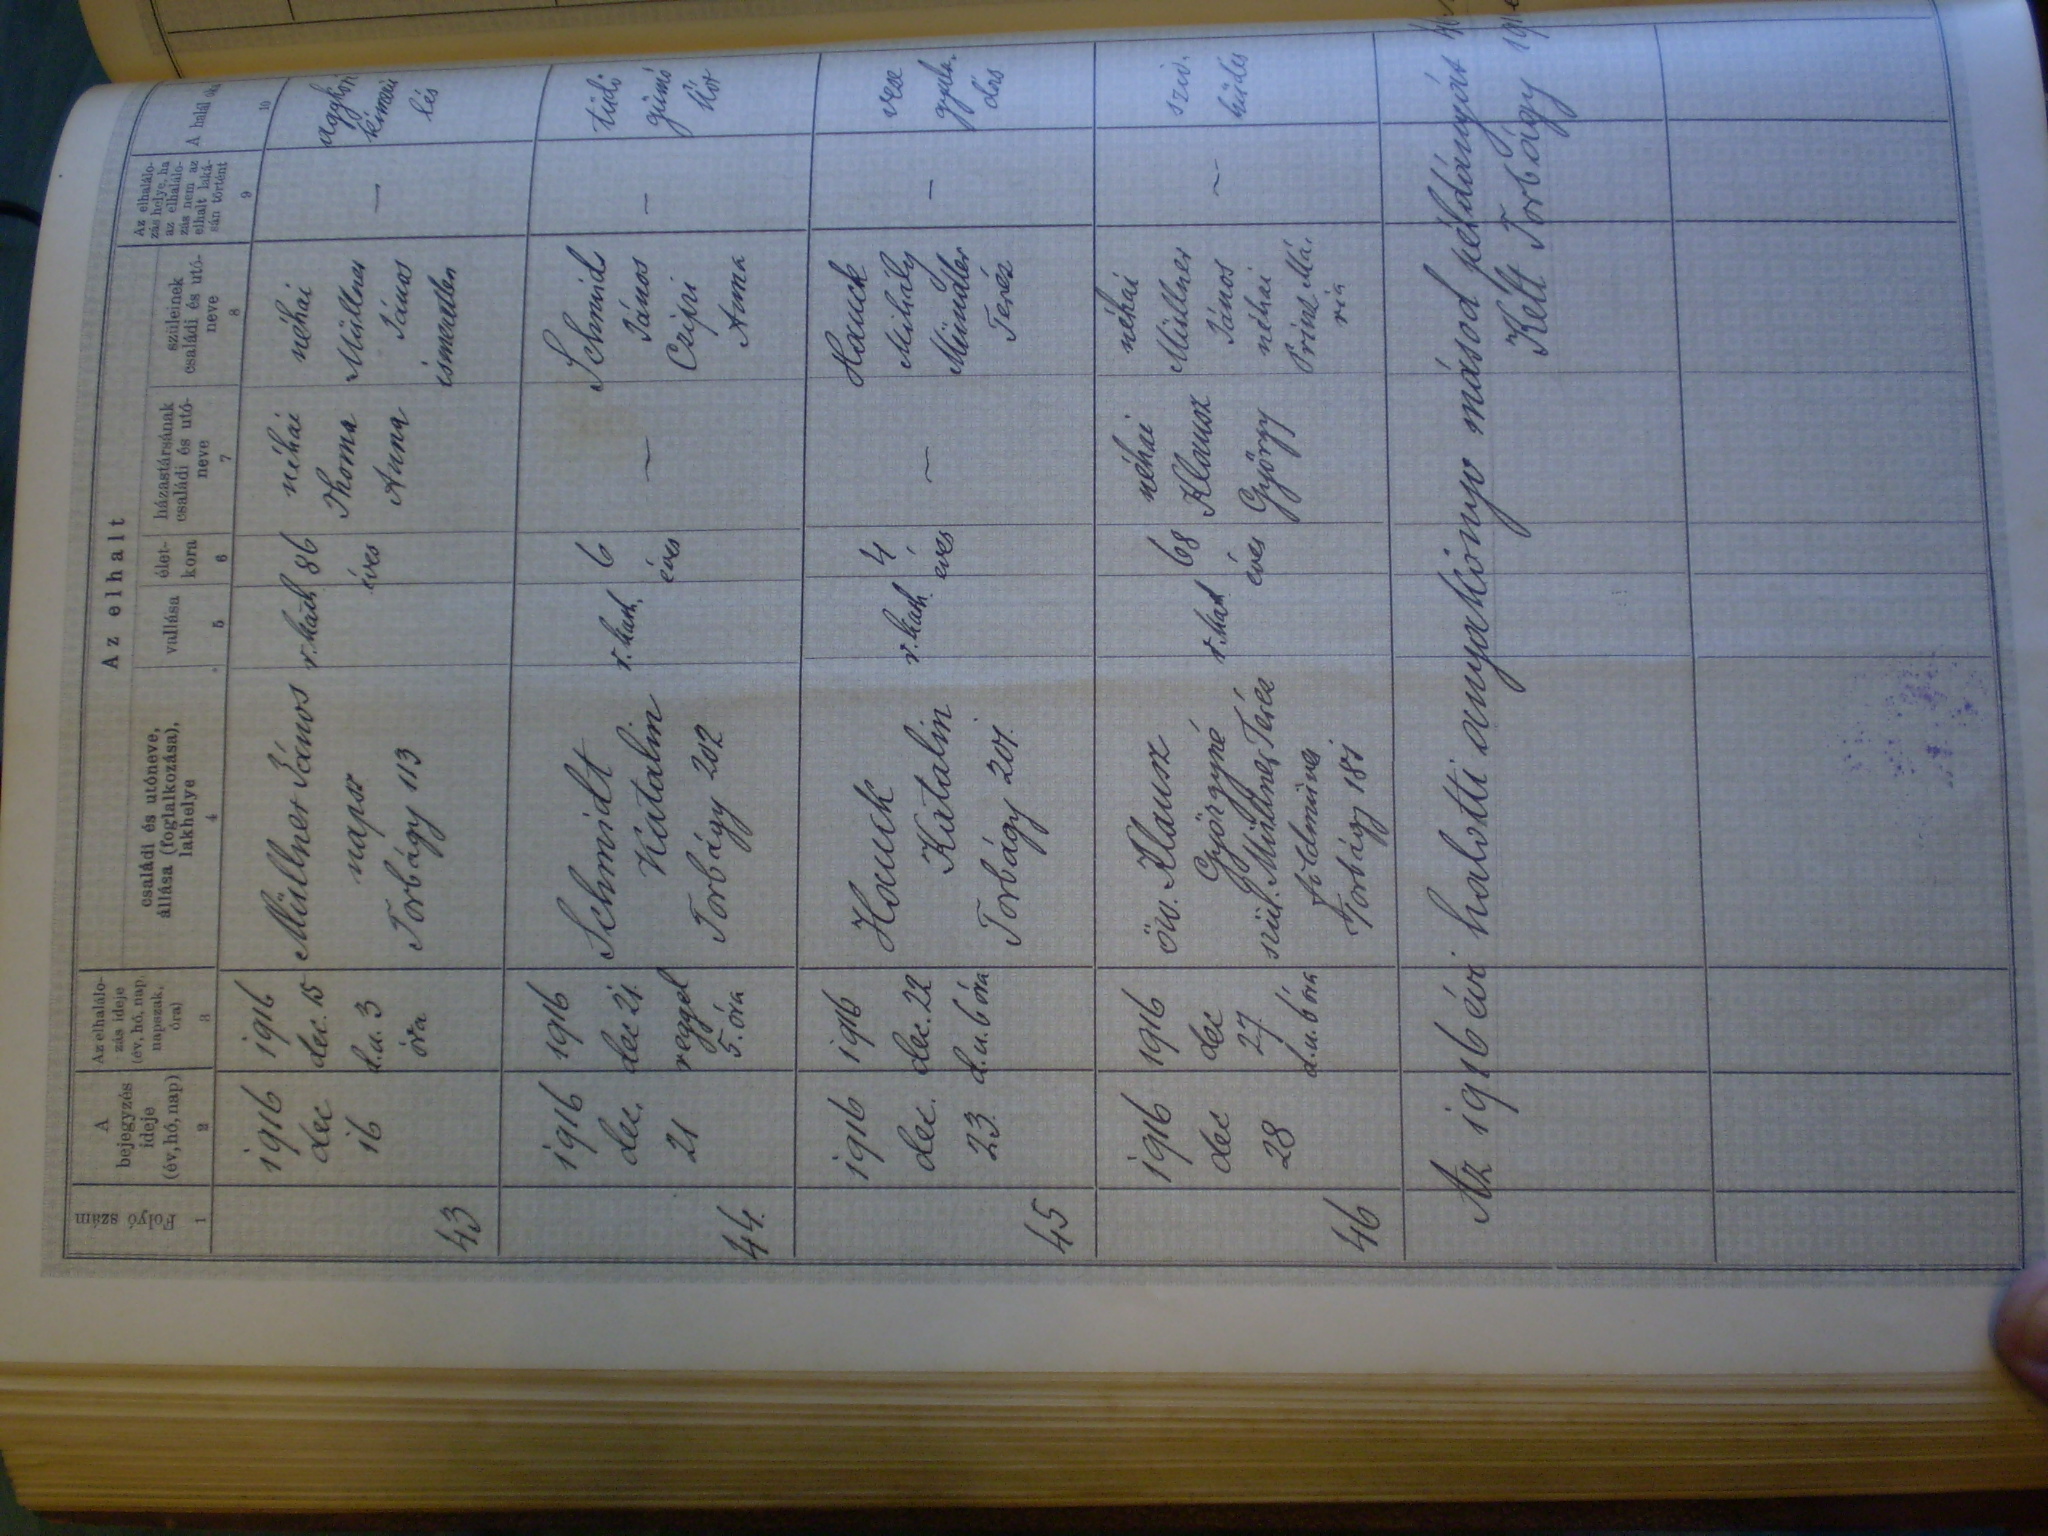 Az elhalt
Folyó szám
A bejegyzés ideje (év, hó, nap)
Az elhalálozás ideje (év, hó, nap, napszak, óra)
családi és utóneve, állása (foglalkozása), lakhelye
vallása
élet-kora
házastársának családi és utóneve
szüleinek családi és utóneve
Az elhalálozás helye, ha az elhalálozás nem az elhalt lakásán történt
A halál oka
1
2
3
4
5
6
7
8
9
10
43
1916
dec
16
1916
dec. 15
d.u. 3
óra
Müllner János
napsz
Torbágy 113
r. kath.
86
éves
néhai
Thoma
Anna
néhai
Müllner
János
ismeretlen
—
aggkori
kimerü
lés
44.
1916
dec.
21
1916
dec 21.
reggel
5. óra
Schmidt
Katalin
Torbágy 202
r. kath.
6
éves
—
Schmid
János
Czipri
Anna
—
tüdő
gümő
kór
45
1916
dec.
23.
1916
dec. 22
d.u. 6 óra
Hauck
Katalin
Torbágy 201.
r. kath.
4
éves
—
Hauck
Mihály
Mündler
Teréz
—
vese
gyula.
dás
46
1916
dec
28
1916
dec
27.
d.u. 6 óra
özv. Klausz
Györgyné
szül. Müllner Teréz
földmüves
Torbágy 181
r. kath
68
éves
néhai
Klausz
György
néhai
Müllner
János
néhai
Prinz Má.
ria
—
sziv.
hüdés
Az 1916 évi halotti anyakönyv másod példányát
Kelt Torbágy 191